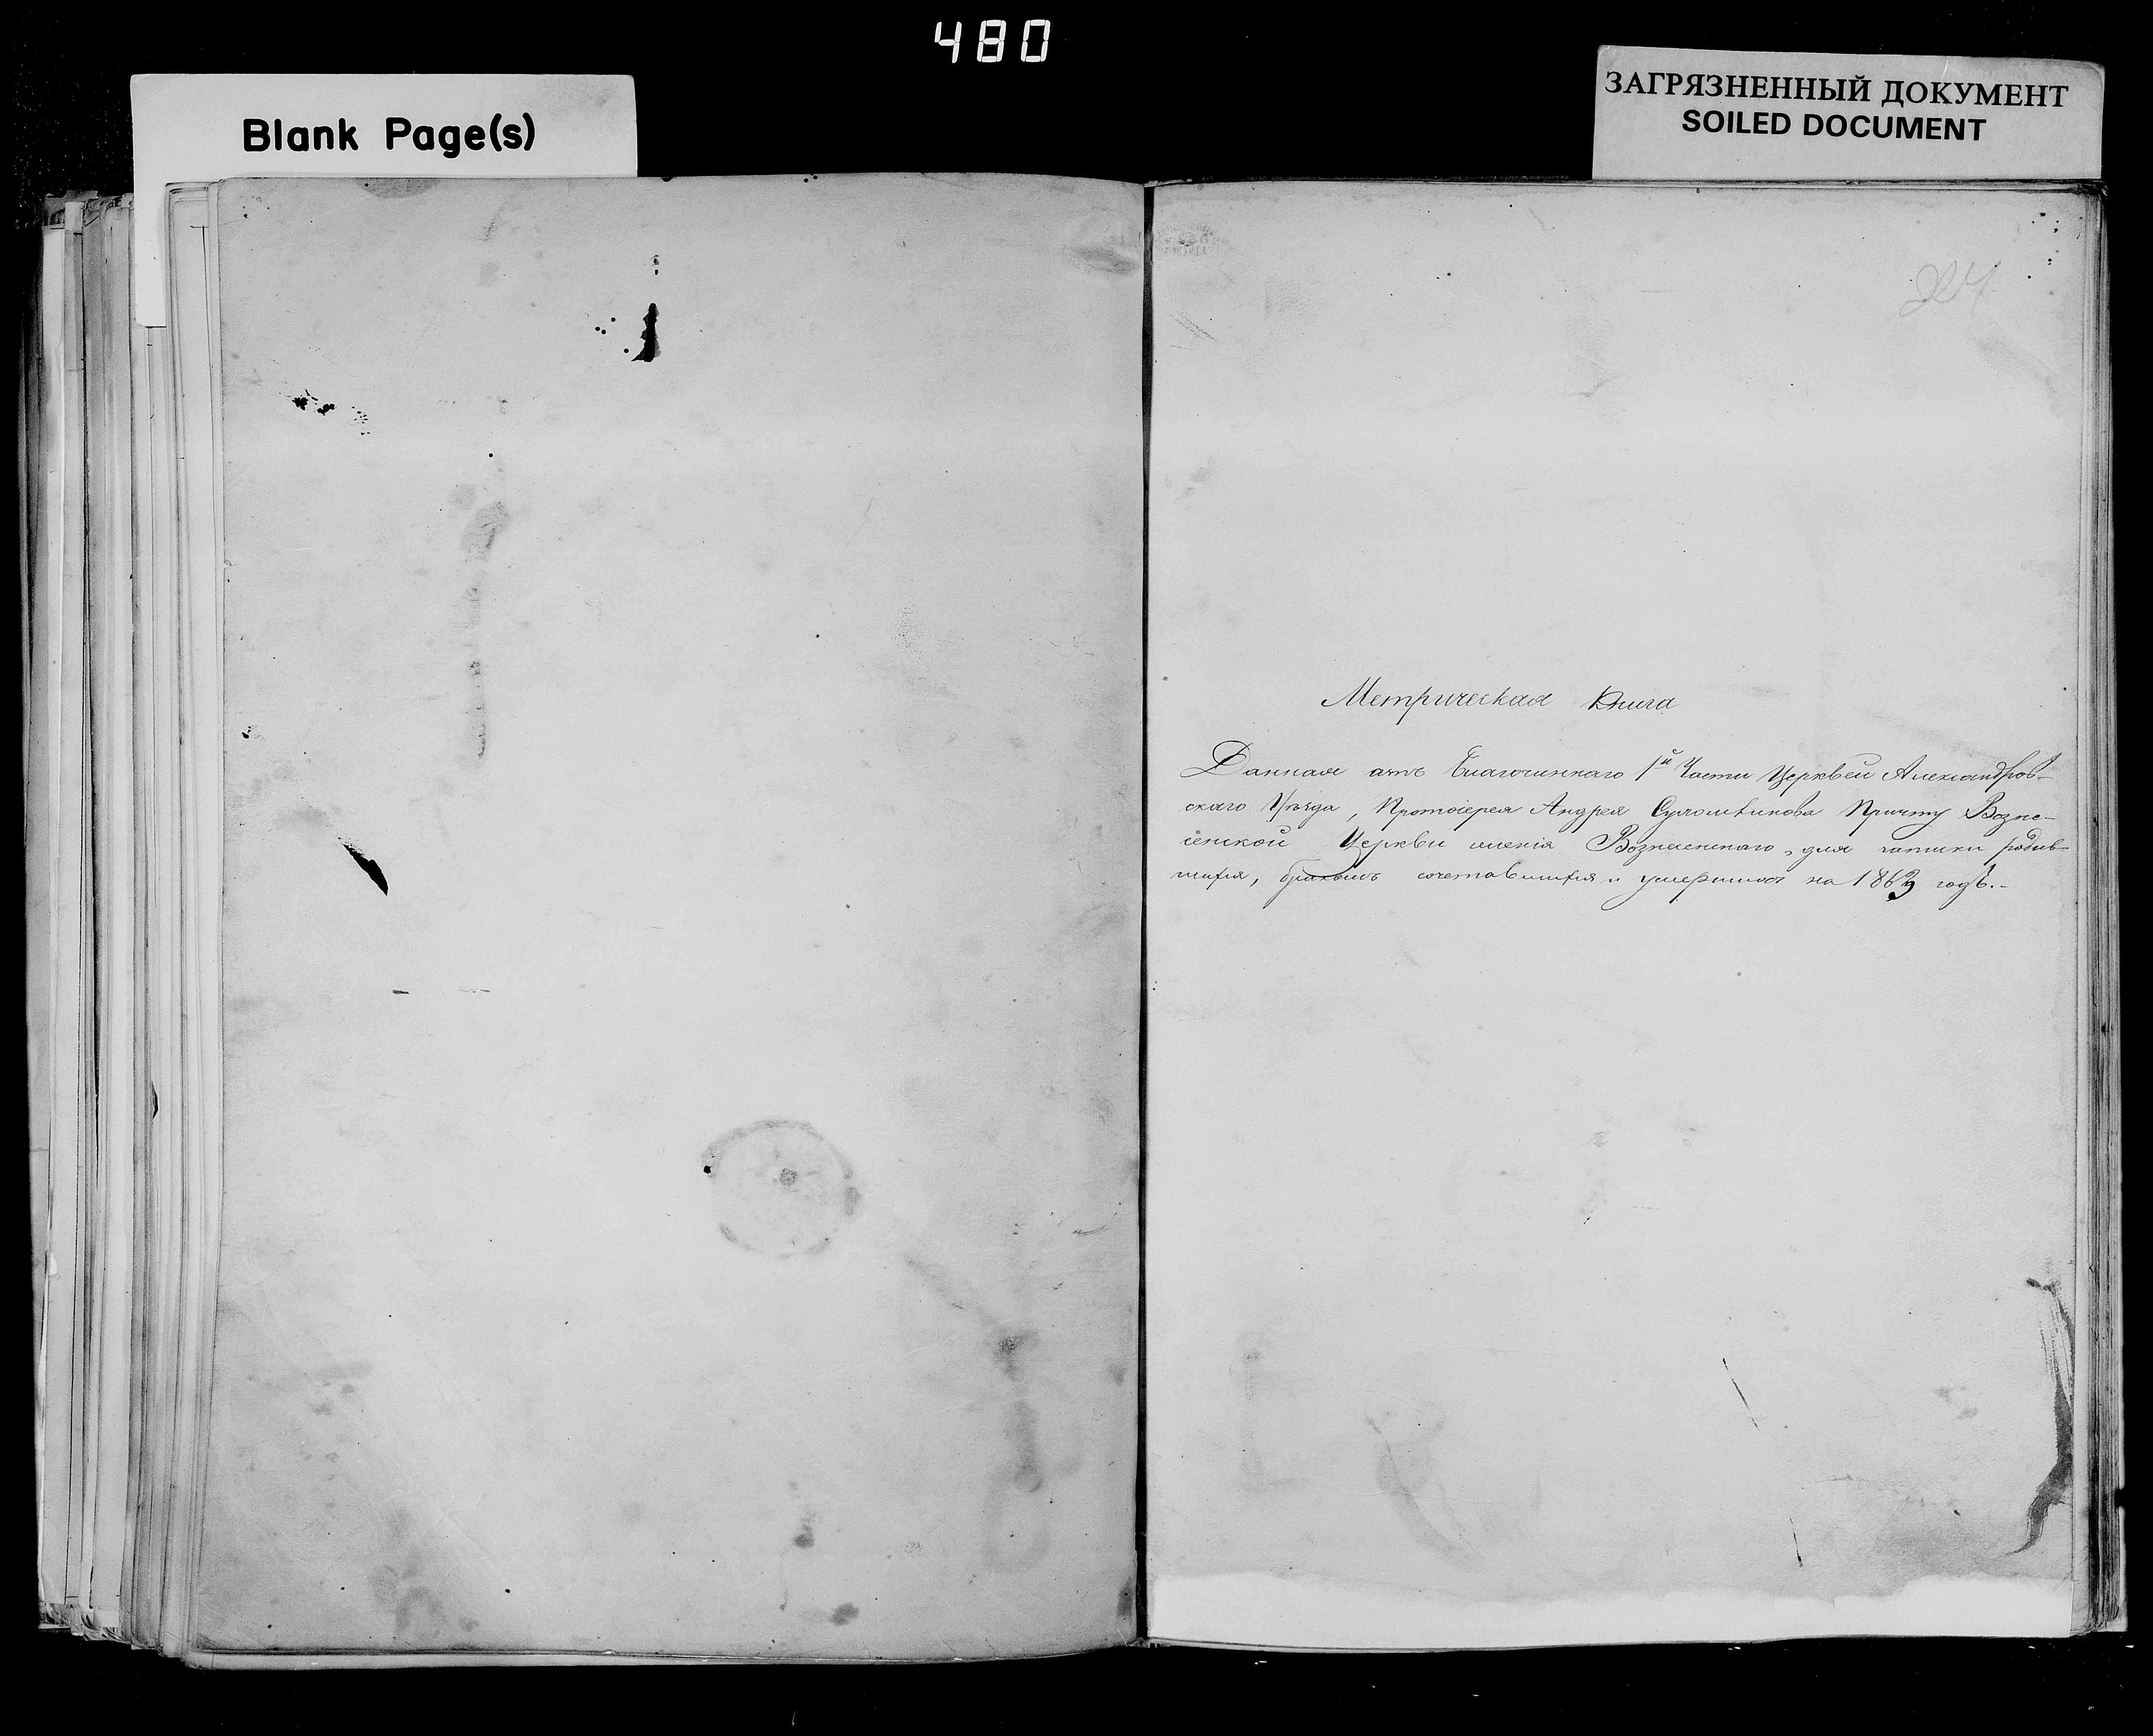 480
Blank Page(s)
ЗАГРЯЗНЕННЫЙ ДОКУМЕНТ
SOILED DOCUMENT
Метрическая Книга
Данная отъ Благочиннаго 1й Части Церквей Александров-
скаго Уѣзда, Протоіерея Андрея Причту Возне-
сенской Церкви имѣнія Вознесенскаго, для записки родив-
шихся, бракомъ сочетавшихся и умершихъ на 1863 годъ.-